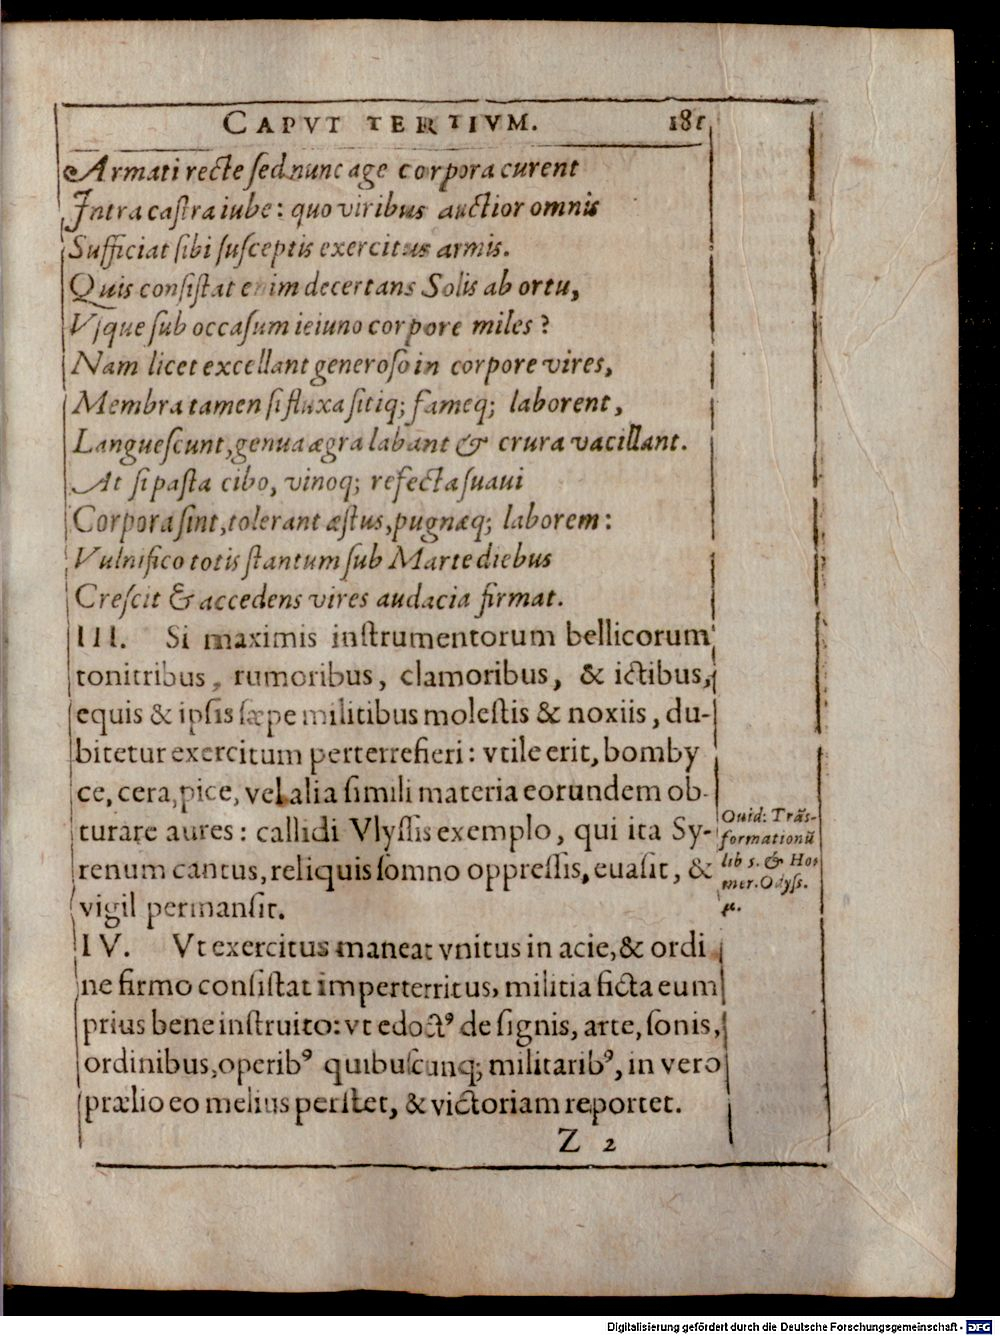 CAPVT TERTIVM. 181
Armati recte sed nunc age corpora curent
Intra castra iube: quo viribus auctior omnis
Sufficiat sibi susceptis exercitus armis.
Quis consistat enim decertans Solis ab ortu,
Vsque sub occasum ieiuno corpore miles?
Nam licet excellant generoso in corpore vires,
Membra tamen si fluxa sitiq; fameq; laborent,
Languescunt, genua ægra labant & crura vacillant.
At si pasta cibo, vinoq; refecta suaui
Corpora sint, tolerant æstus, pugnæq; laborem:
Vulnifico totis stantum sub Marte diebus
Crescit & accedens vires audacia firmat.
III. Si maximis instrumentorum bellicorum
tonitribus, rumoribus, clamoribus, & ictibus,
equis & ipsis sæpe militibus molestis & noxiis, du-
bitetur exercitum perterrefieri: vtile erit, bomby
ce, cera, pice, vel alia simili materia eorundem ob-
turare aures: callidi Vlyssis exemplo, qui ita Sy-
renum cantus, reliquis somno oppressis, euasit, &
vigil permansit.
Ouid: Trãs-
formationũ
lib 5. & Ho-
mer. Odyss.
μ.
IV. Vt exercitus maneat vnitus in acie, & ordi
ne firmo consistat imperterritus, militia ficta eum
prius bene instruito: vt edoctꝰ de signis, arte, sonis,
ordinibus, operibꝰ quibuscunq; militaribꝰ, in vero
prælio eo melius perstet, & victoriam reportet.
Z 2
Digitalisierung gefördert durch die Deutsche Forschungsgemeinschaft - DFG